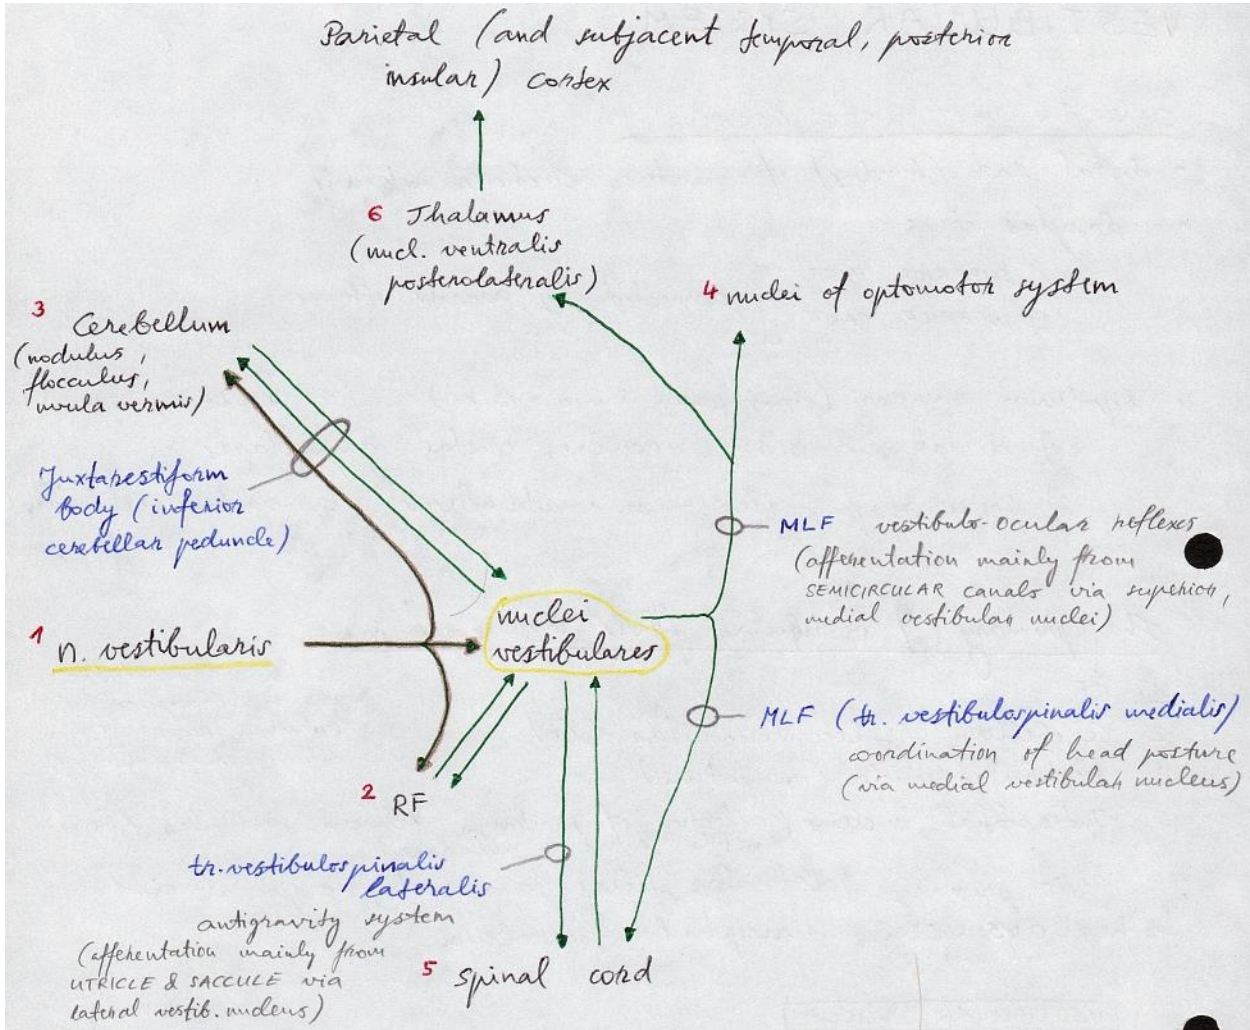 Parietal (and subjacent temporal, posterior
insular) cortex
6 Thalamus
(nucl. ventralis
posterolateralis)
4 nuclei of optomotor system
3 Cerebellum
(nodulus,
flocculus,
uvula vermis)
Juxtarestiform
body (inferior
cerebellar peduncle)
MLF vestibulo-ocular reflexes
(afferentation mainly from
SEMICIRCULAR canals via superior,
medial vestibular nuclei)
1 n. vestibularis
nuclei
vestibulares
MLF (tr. vestibulospinalis medialis)
coordination of head posture
(via medial vestibular nucleus)
2 RF
tr. vestibulospinalis
lateralis
antigravity system
(afferentation mainly from
UTRICLE & SACCULE via
lateral vestib. nucleus)
5 spinal cord